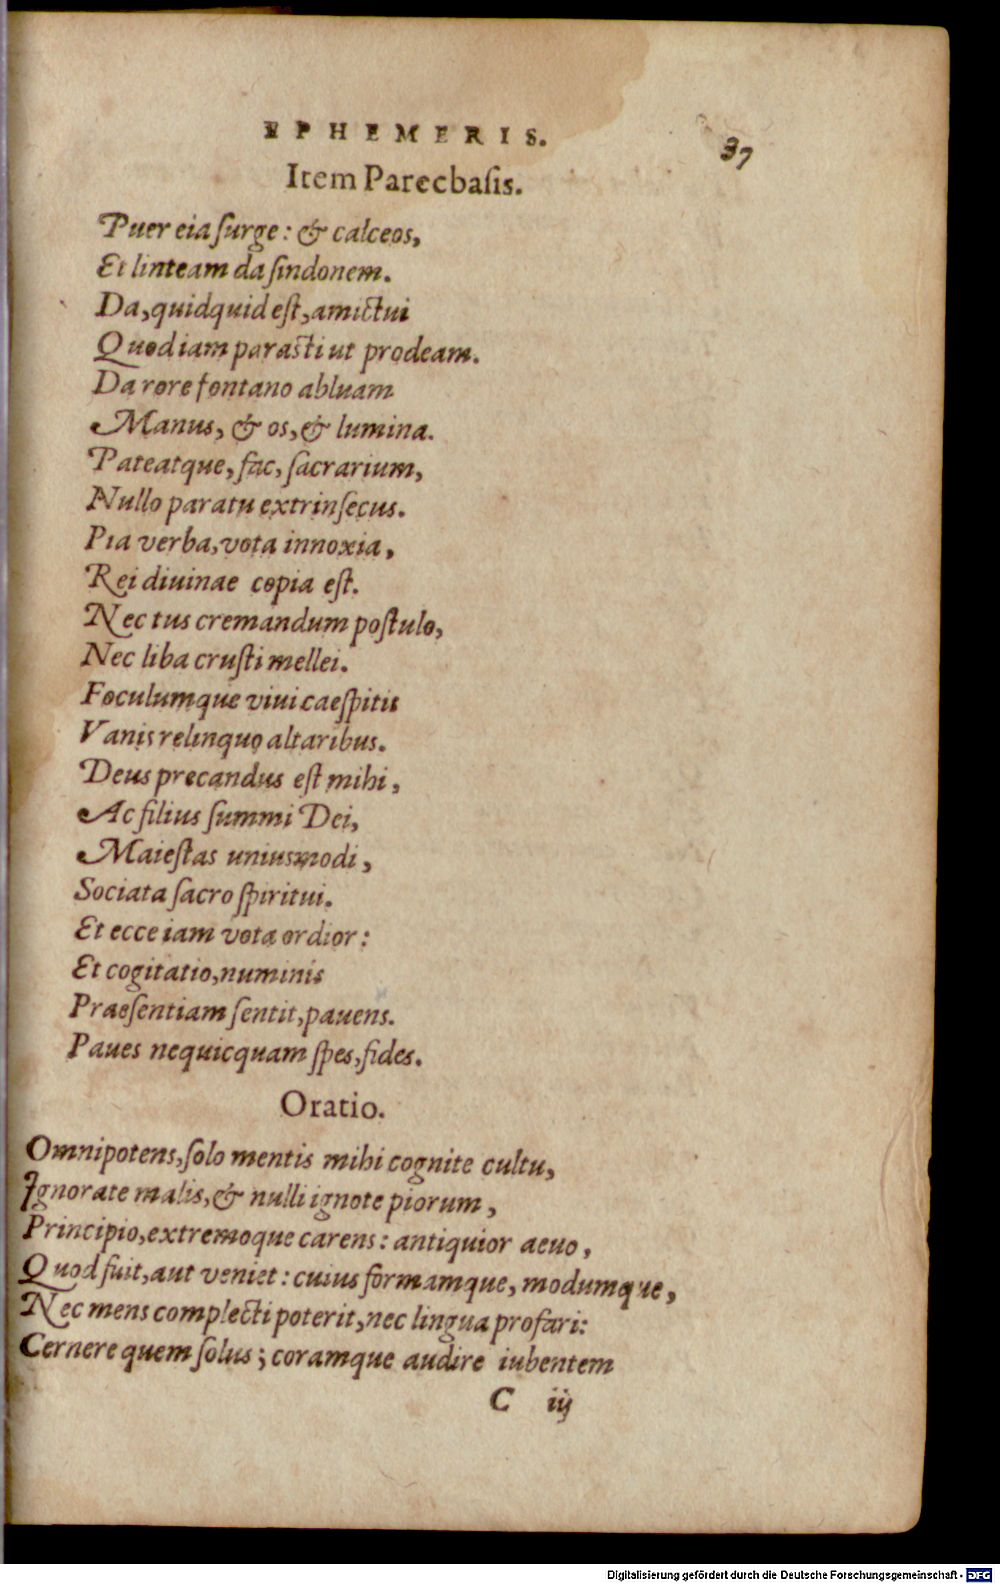 EPHEMERIS. 37
Item Parecbaſis.
Puer eia ſurge: & calceos,
Et linteam da ſindonem.
Da, quidquid eſt, amictui
Quod iam paraſti ut prodeam.
Da rore fontano abluam
Manus, & os, & lumina.
Pateatque, fac, ſacrarium,
Nullo paratu extrinſecus.
Pia verba, vota innoxia,
Rei diuinae copia eſt.
Nec tus cremandum poſtulo,
Nec liba cruſti mellei.
Foculumque viui caeſpitis
Vanis relinquo altaribus.
Deus precandus eſt mihi,
Ac filius ſummi Dei,
Maieſtas uniusmodi,
Sociata ſacro ſpiritui.
Et ecce iam vota ordior:
Et cogitatio, numinis
Praeſentiam ſentit, pauens.
Paues nequicquam ſpes, fides.
Oratio.
Omnipotens, ſolo mentis mihi cognite cultu,
Ignorate malis, & nulli ignote piorum,
Principio, extremoque carens: antiquior aeuo,
Quod fuit, aut veniet: cuius formamque, modumque,
Nec mens complecti poterit, nec lingua profari:
Cernere quem ſolus; coramque audire iubentem
C iij
Digitalisierung gefördert durch die Deutsche Forschungsgemeinschaft - DFG